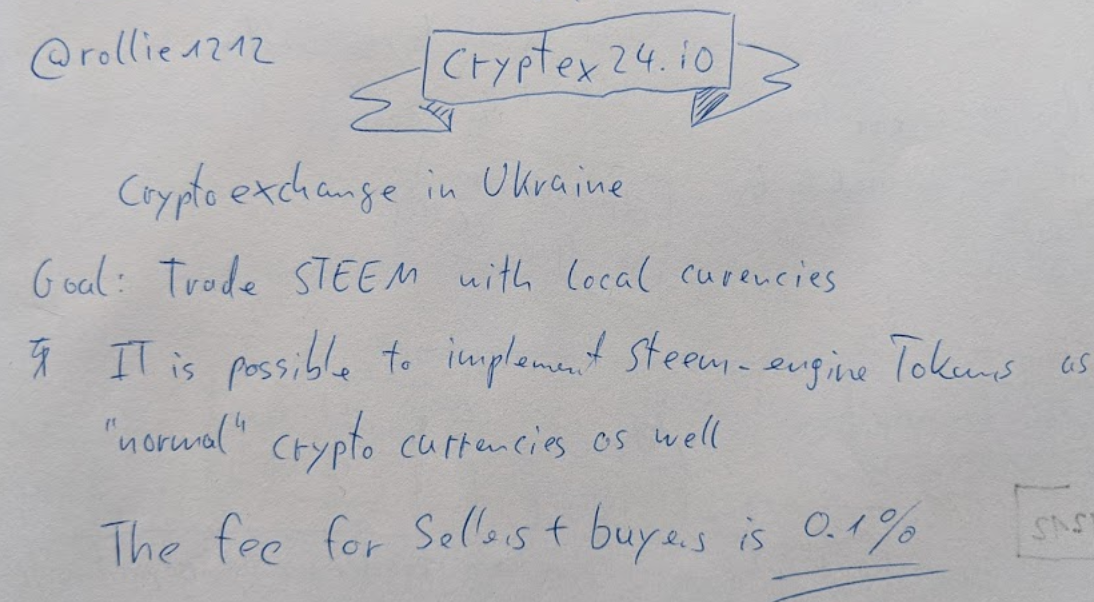 @rollie1212
Cryptex24.io
Crypto exchange in Ukraine
Goal: Trade STEEM with local curencies
IT is possible to implement steem-engine Tokens as
"normal" crypto currencies as well
The fee for Sellers + buyers is 0.1%